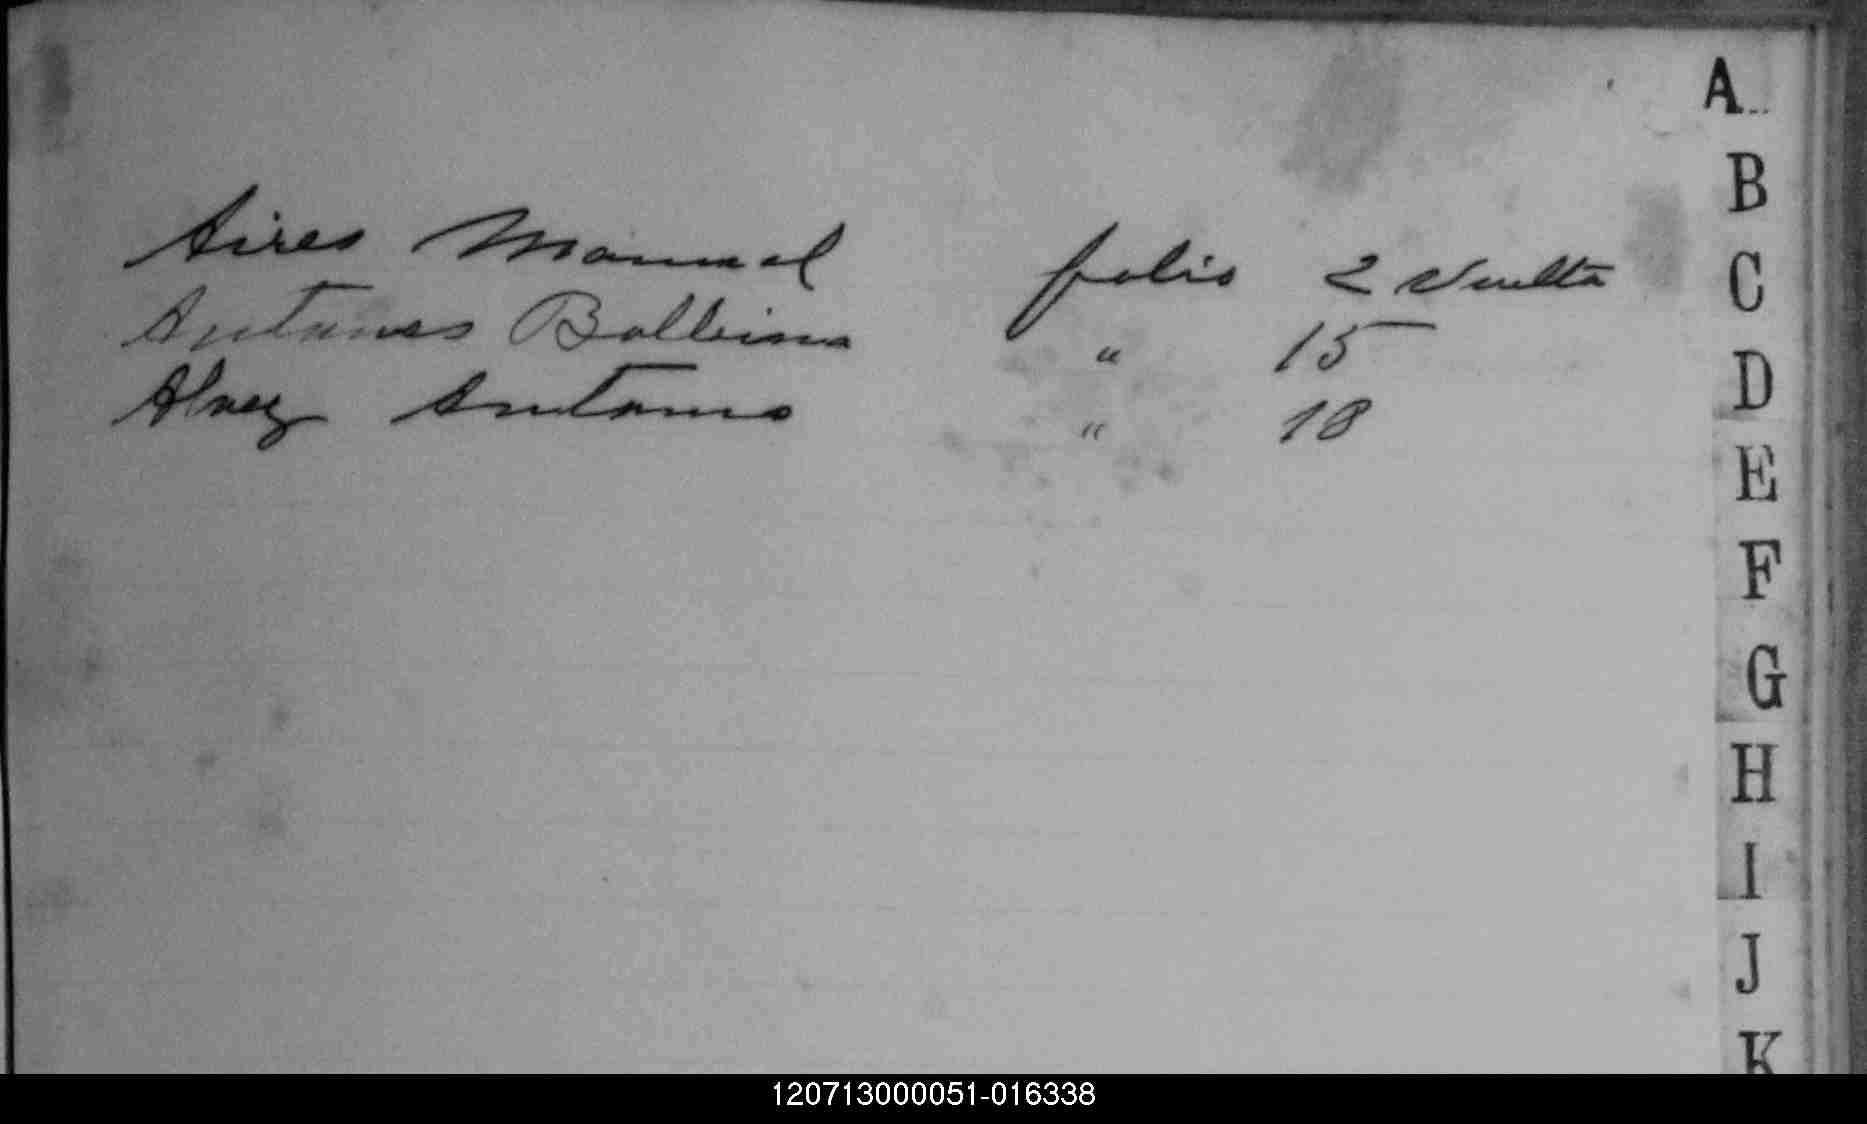 Aires Manuel folio 2 Vuelta
Antunes Balbina " 15
Alvez Antonio " 18
A
B
C
D
E
F
G
H
I
J
K
120713000051-016338